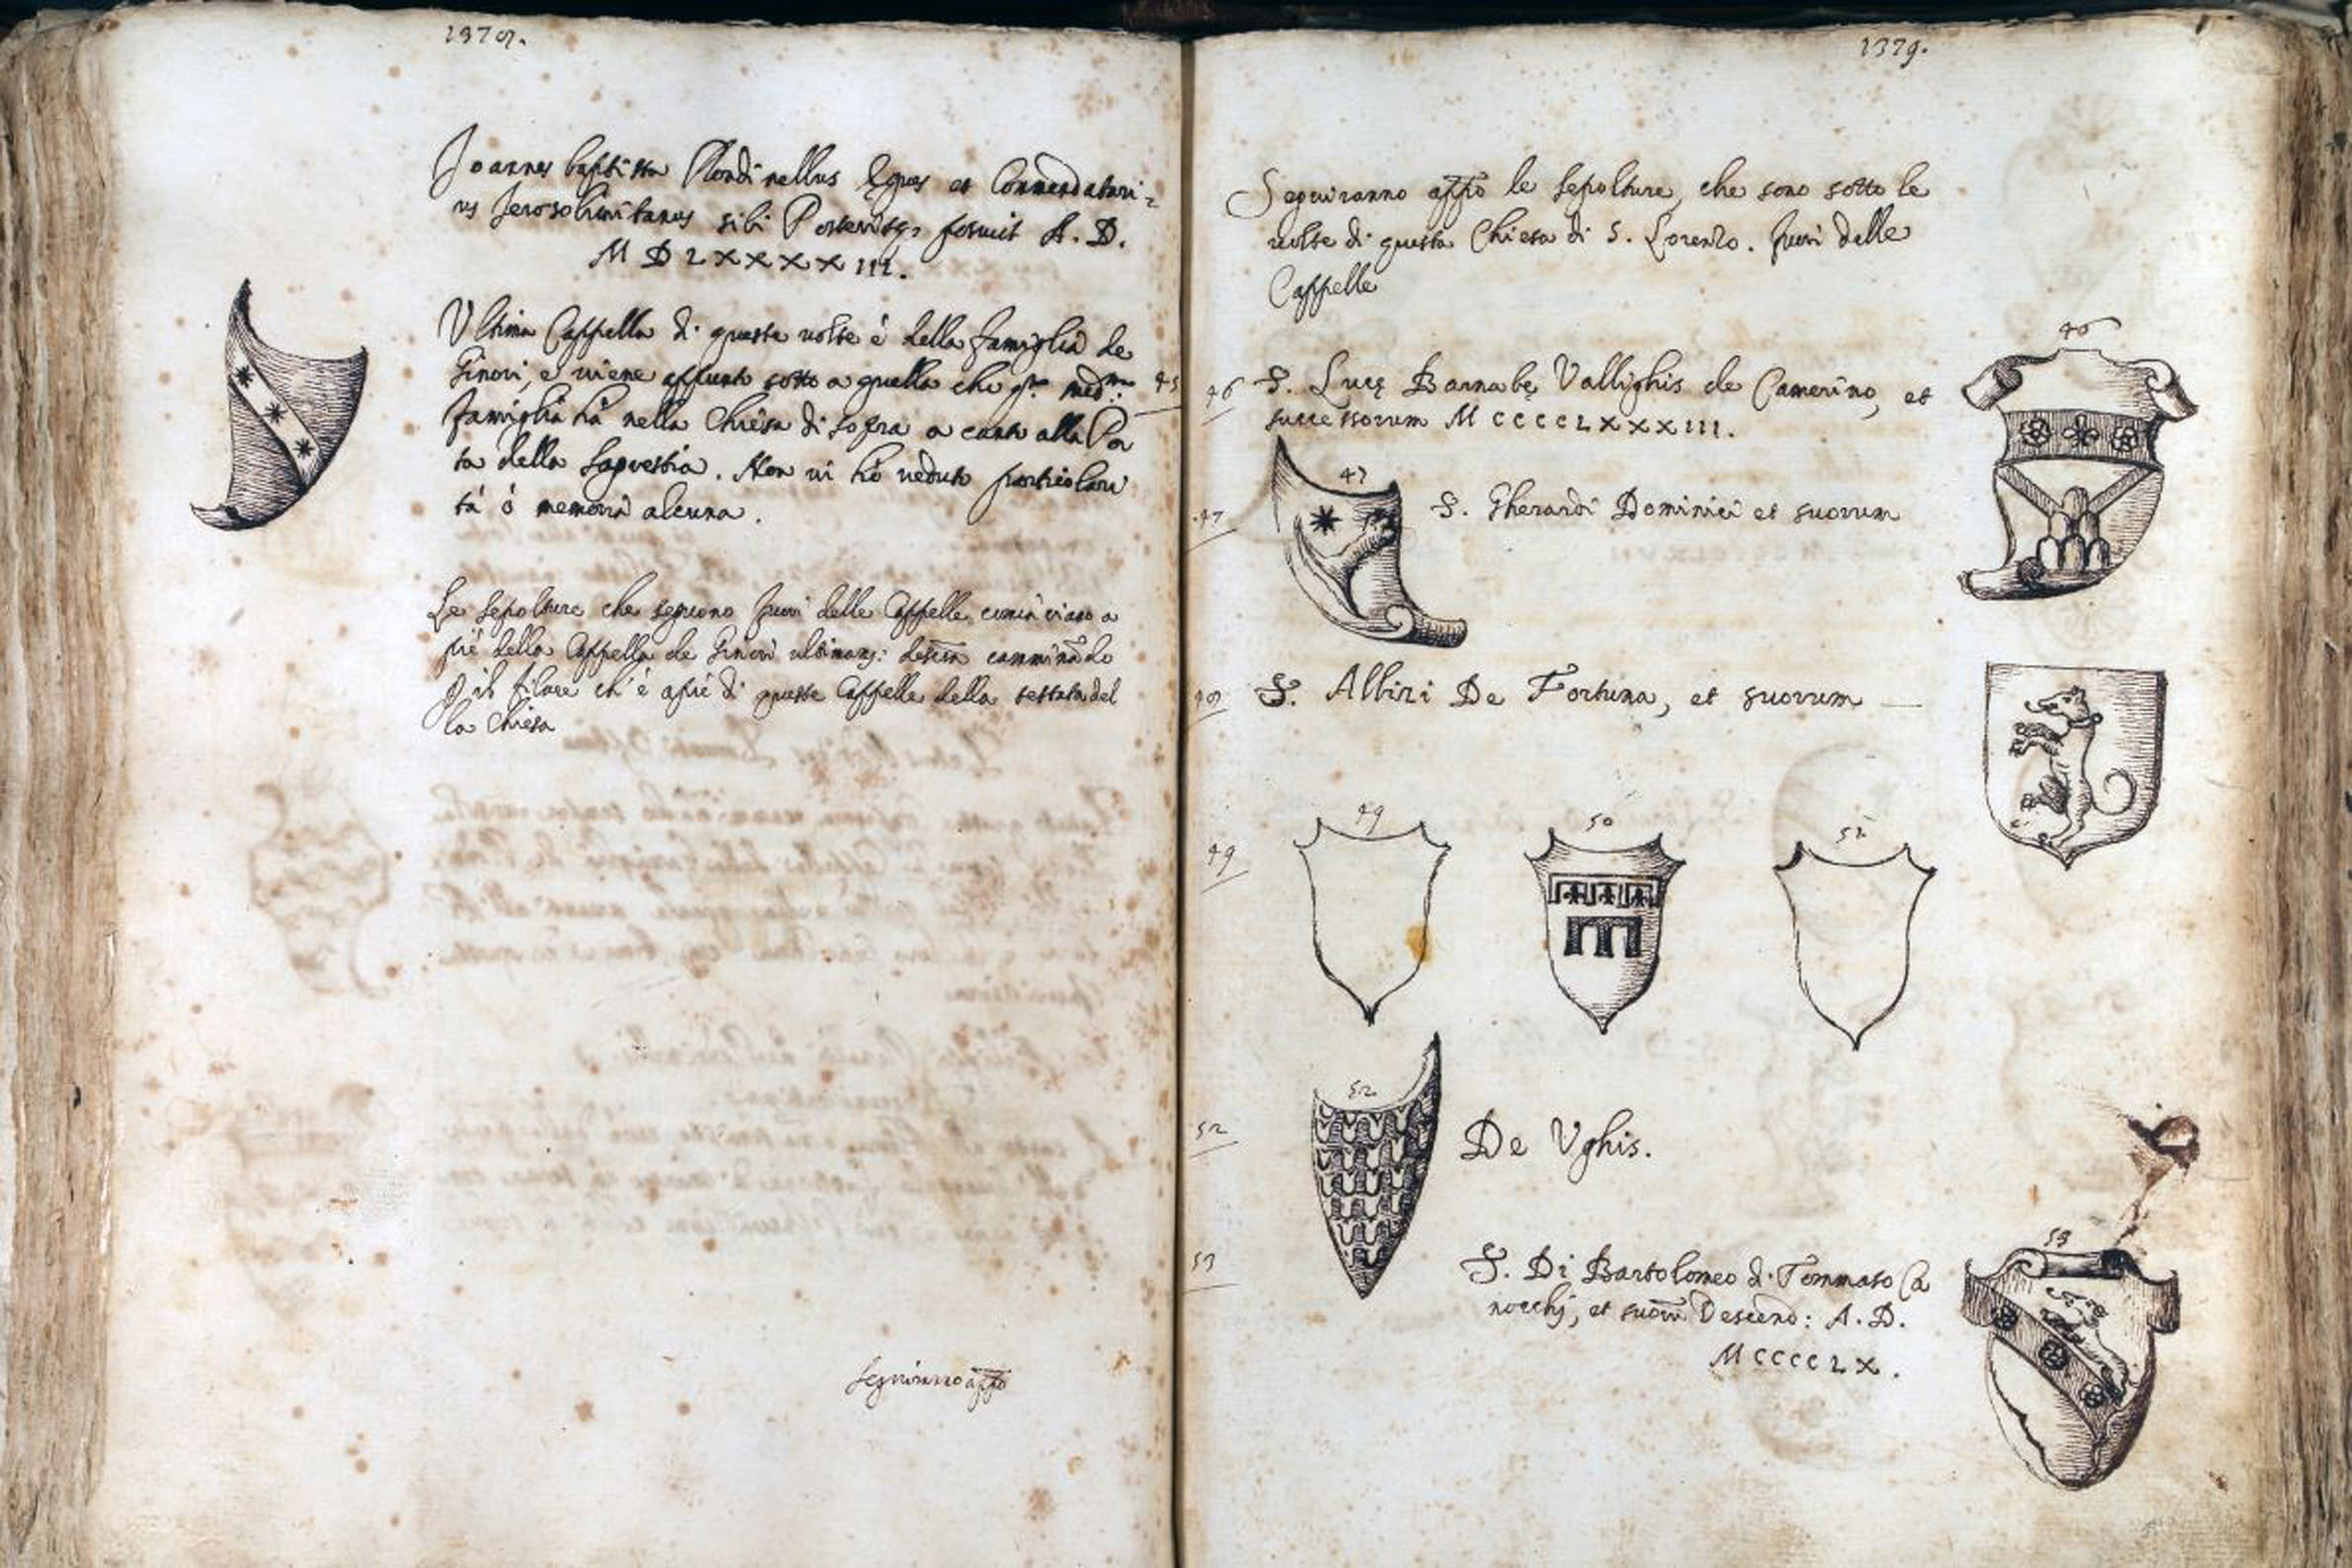 1378.
Joannes baptista Rondinellus Eques et Commendatari-
us Jerosolimitanus sibi Posterisq; posuit A. D.
M D L X X X X III.
Ultima Cappella di queste volte è della famiglia de
Ginori, e viene appunto sotto a quella che q.ta med.ma 45
famiglia hà nella Chiesa di sopra a canto alla Por
ta della Sagrestia. Non vi hò veduto particolari
tà ò memoria alcuna.
Le sepolture che seguono fuori delle Cappelle, cominciano a
piè della Cappella de Ginori camminādo
il filare ch'è a piè di queste Cappelle della testata del
la Chiesa
Seguiranno app̄o
1379.
Seguiranno app̄o le sepolture, che sono sotto le
volte di questa Chiesa di S. Lorenzo. fuori delle
Cappelle
46
46 S. Lucę Barnabę Vallighis de Camerino, et
successorum M C C C C L X X X III.
47
47 S. Gherardi Dominici et suorum
48 S. Albizi De Fortuna, et suorum
49 50 51
49
52
52 De Ughis.
53 53
S. Di Bartolomeo di Tommaso Ca
nocchj, et suoru̅ Descend: A. D.
M C C C C L X.